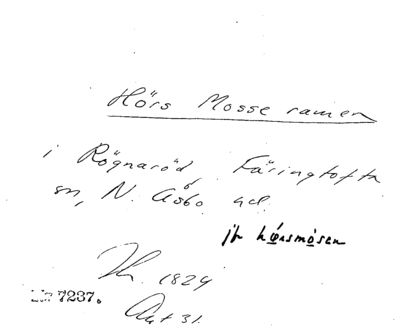 Hörs Mosse ramen
i Rögnaröd, Färingtofta
sn, N. Åsbo hd.
jfr hǿrsmosen
1824
Akt 31.
7237.